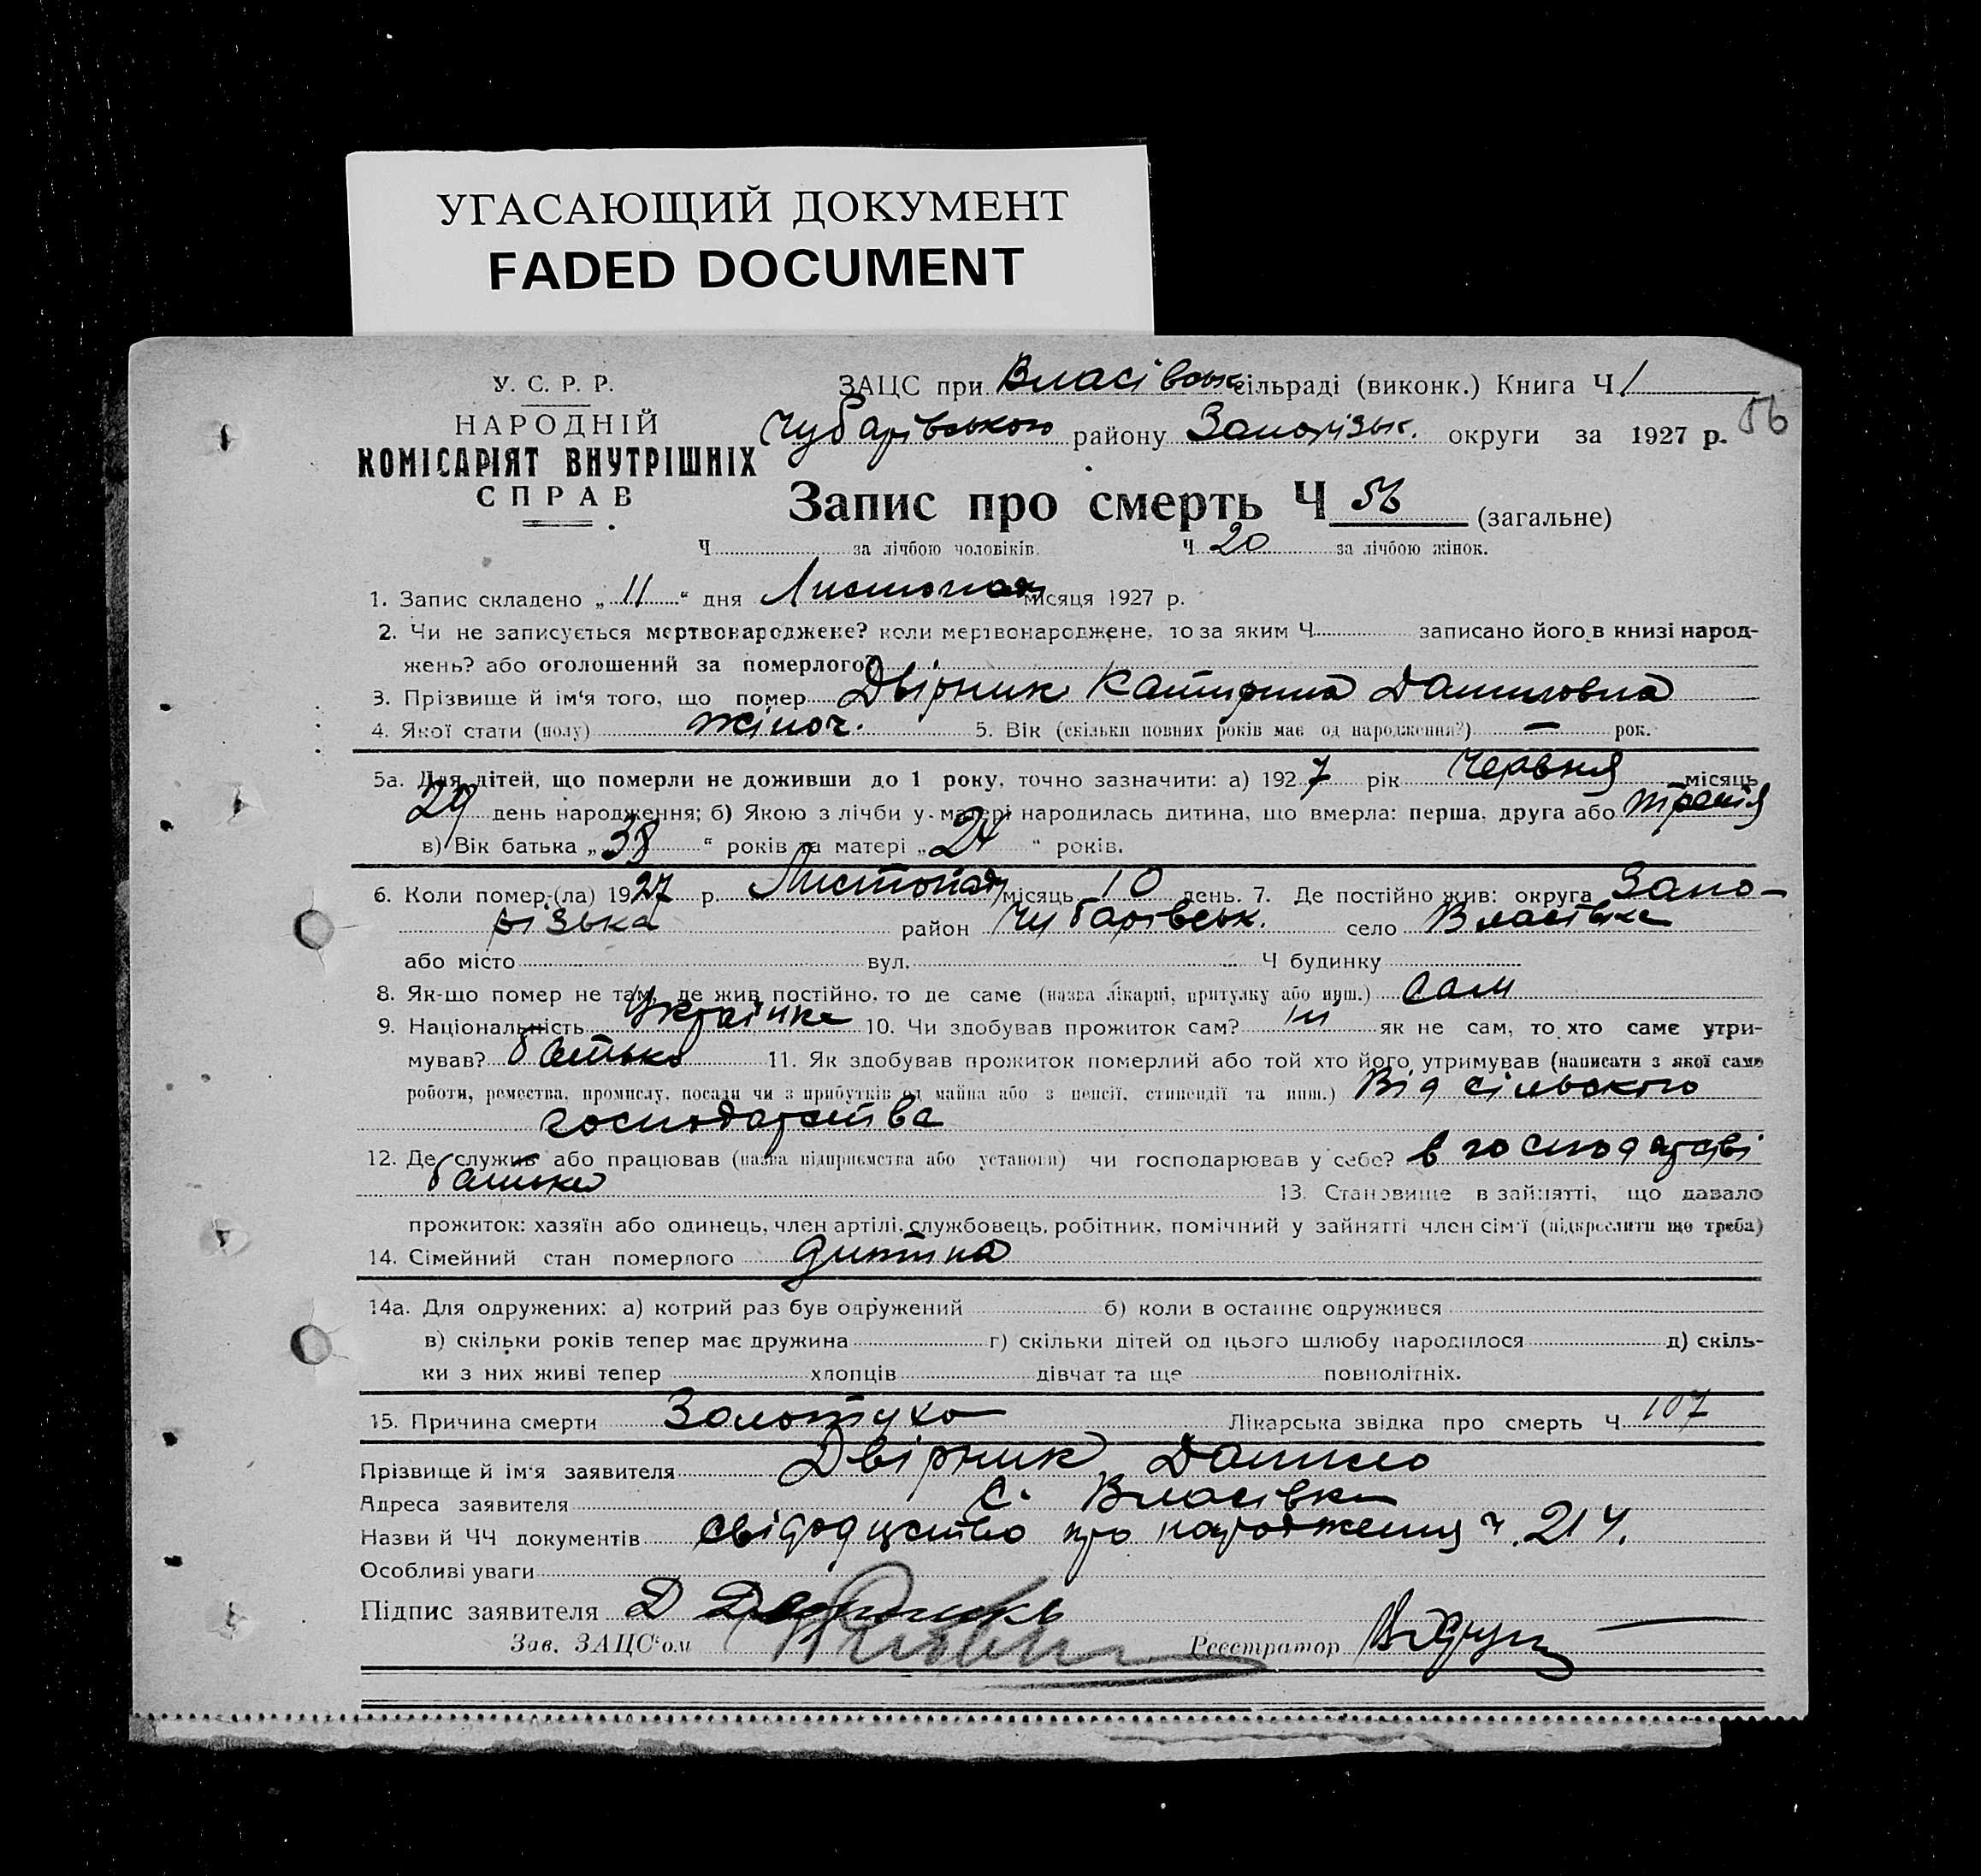 УГАСАЮЩИЙ ДОКУМЕНТ
FADED DOCUMENT
У. С. Р. Р.
НАРОДНІЙ
КОМІСАРІЯТ ВНУТРІШНІХ
СПРАВ
ЗАЦС при Власівськ. сільраді (виконк.) Книга Ч 1
56
Чубарівського району Запорізьк. округи за 1927 р.
Запис про смерть Ч 56 (загальне)
Ч за лічбою чоловіків. Ч 20 за лічбою жінок.
1. Запис складено „ 11 “ дня Листопад місяця 1927 р.
2. Чи не записується мертвонароджене? коли мертвонароджене, то за яким Ч записано його в книзі народ-
жень? або оголошений за померлого?
3. Прізвище й ім‘я того, що помер Двірник Катирина Даниловна
4. Якої стати (полу) жіноч. 5. Вік (скільки повних років має од народження?) — рок.
5а. Для дітей, що померли не доживши до 1 року, точно зазначити: а) 1927 рік Червня місяць
29 день народження; б) Якою з лічби у матері народилась дитина, що вмерла: перша, друга або третя
в) Вік батька „ 38 “ років та матері „ 24 “ років.
6. Коли помер-(ла) 1927 р. Листопад місяць 10 день. 7. Де постійно жив: округа Запо-
різька район Чубарівськ. село Власівка
або місто вул. Ч будинку
8. Як-що помер не там, де жив постійно, то де саме (назва лікарні, притулку або инш.) сам
9. Національність Українка 10. Чи здобував прожиток сам? ні як не сам, то хто саме утри-
мував? батько 11. Як здобував прожиток померлий або той хто його утримував (написати з якої саме
роботи, ремества, промислу, посади чи з прибутків од майна або з пенсії, стипендії та инш.) Від сільского
господарства
12. Де служив або працював (назва підприємства або установи) чи господарював у себе? в господарстві
батька 13. Становище в зайнятті, що давало
прожиток: хазяїн або одинець, член артілі, службовець, робітник, помічний у зайнятті член сім‘ї (підкреслити що треба)
14. Сімейний стан померлого дитина
14а. Для одружених: а) котрий раз був одружений б) коли в останнє одружився
в) скільки років тепер має дружина г) скільки дітей од цього шлюбу народилося д) скіль-
ки з них живі тепер хлопців дівчат та ще повнолітніх.
15. Причина смерти Золотуха Лікарська звідка про смерть Ч 107
Прізвище й ім‘я заявителя Двірник Данило
Адреса заявителя с. Власівка
Назви й ЧЧ документів свідоцтво про народження ч. 214.
Особливі уваги
Підпис заявителя Д
Зав. ЗАЦС‘ом Реєстратор